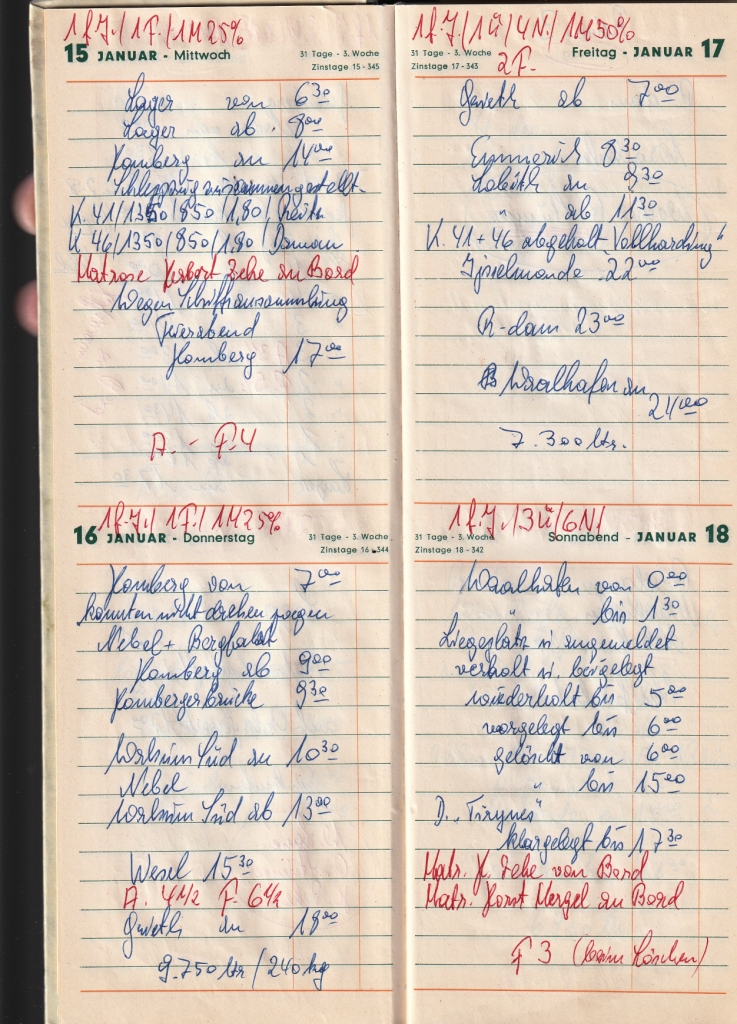 1 f.J./1F./1M25%
15 JANUAR - Mittwoch
31 Tage - 3. Woche
Zinstage 15 - 345
Lager von 6 30
Lager ab 8 00
Homberg an 14 00
Schleppzug zusammengestellt.
K. 41/1350/850/1,80/
K. 46/1350/850/1,80/
Matrose Herbert Zehe an Bord
Wegen Schiffsansammlung
Feierabend
Homberg 17 00
A. - F. 4
1 f.J./1F./1M25%
16 JANUAR - Donnerstag
31 Tage - 3. Woche
Zinstage 16 - 344
Homberg von 7 00
konnten nicht drehen wegen
Nebel + Bergfahrt
Homberg ab 9 00
Hombergerbrücke 9 30
Walsum Süd an 10 30
Nebel
Walsum Süd ab 13 00
Wesel 15 30
A. 4 1/2 F. 6 1/2
an 18 00
9.750 ltr / 240 kg
1 f.J./1Ü/4N./1M50%
2F.
Freitag - JANUAR 17
31 Tage - 3. Woche
Zinstage 17 - 343
ab 7 00
Emmerich 8 30
Lobith an 9 30
" ab 11 30
K. 41 + 46 abgeholt "Vollharding"
Ijselmonde 22 00
R-dam 23 00
Waalhafen an
24 00
7.300 ltr.
1 f.J./3Ü/6N/
Sonnabend - JANUAR 18
31 Tage - 3. Woche
Zinstage 18 - 342
Waalhafen von 0 00
" bis 1 30
Liegeplatz u. angemeldet
verholt u. beigelegt
wiederholt bis 5 00
vorgelegt bis 6 00
gelöscht von 6 00
" bis 15 00
D. "Tirynes"
klargelegt bis 17 30
Matr. H. Zehe von Bord
Matr. Horst Mergel an Bord
F 3 (beim Löschen)